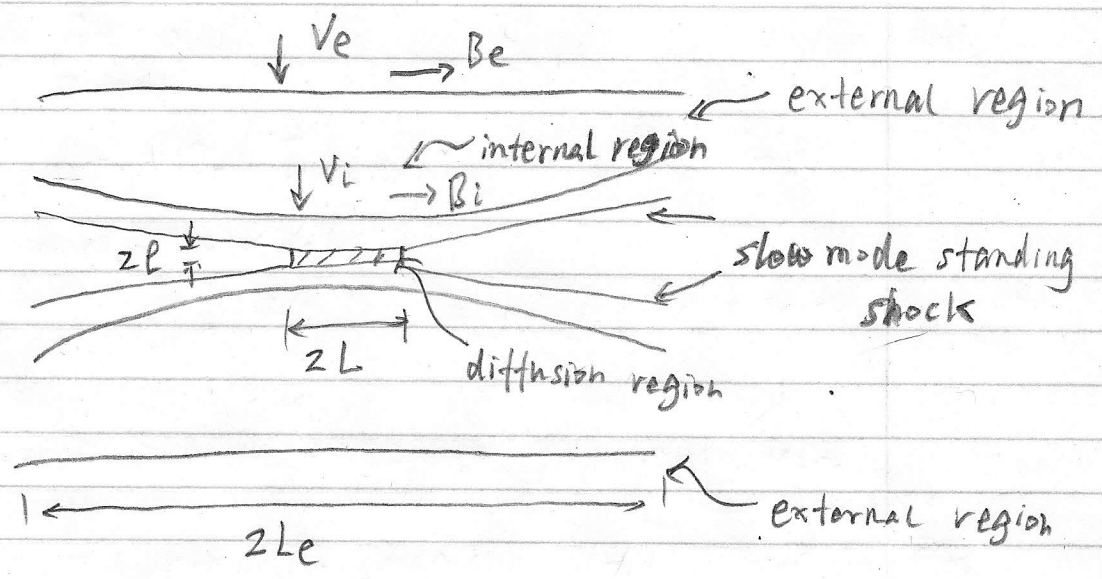 Ve
Be
external region
internal region
Vi
Bi
2l
slow mode standing
shock
2L
diffusion region
external region
2Le